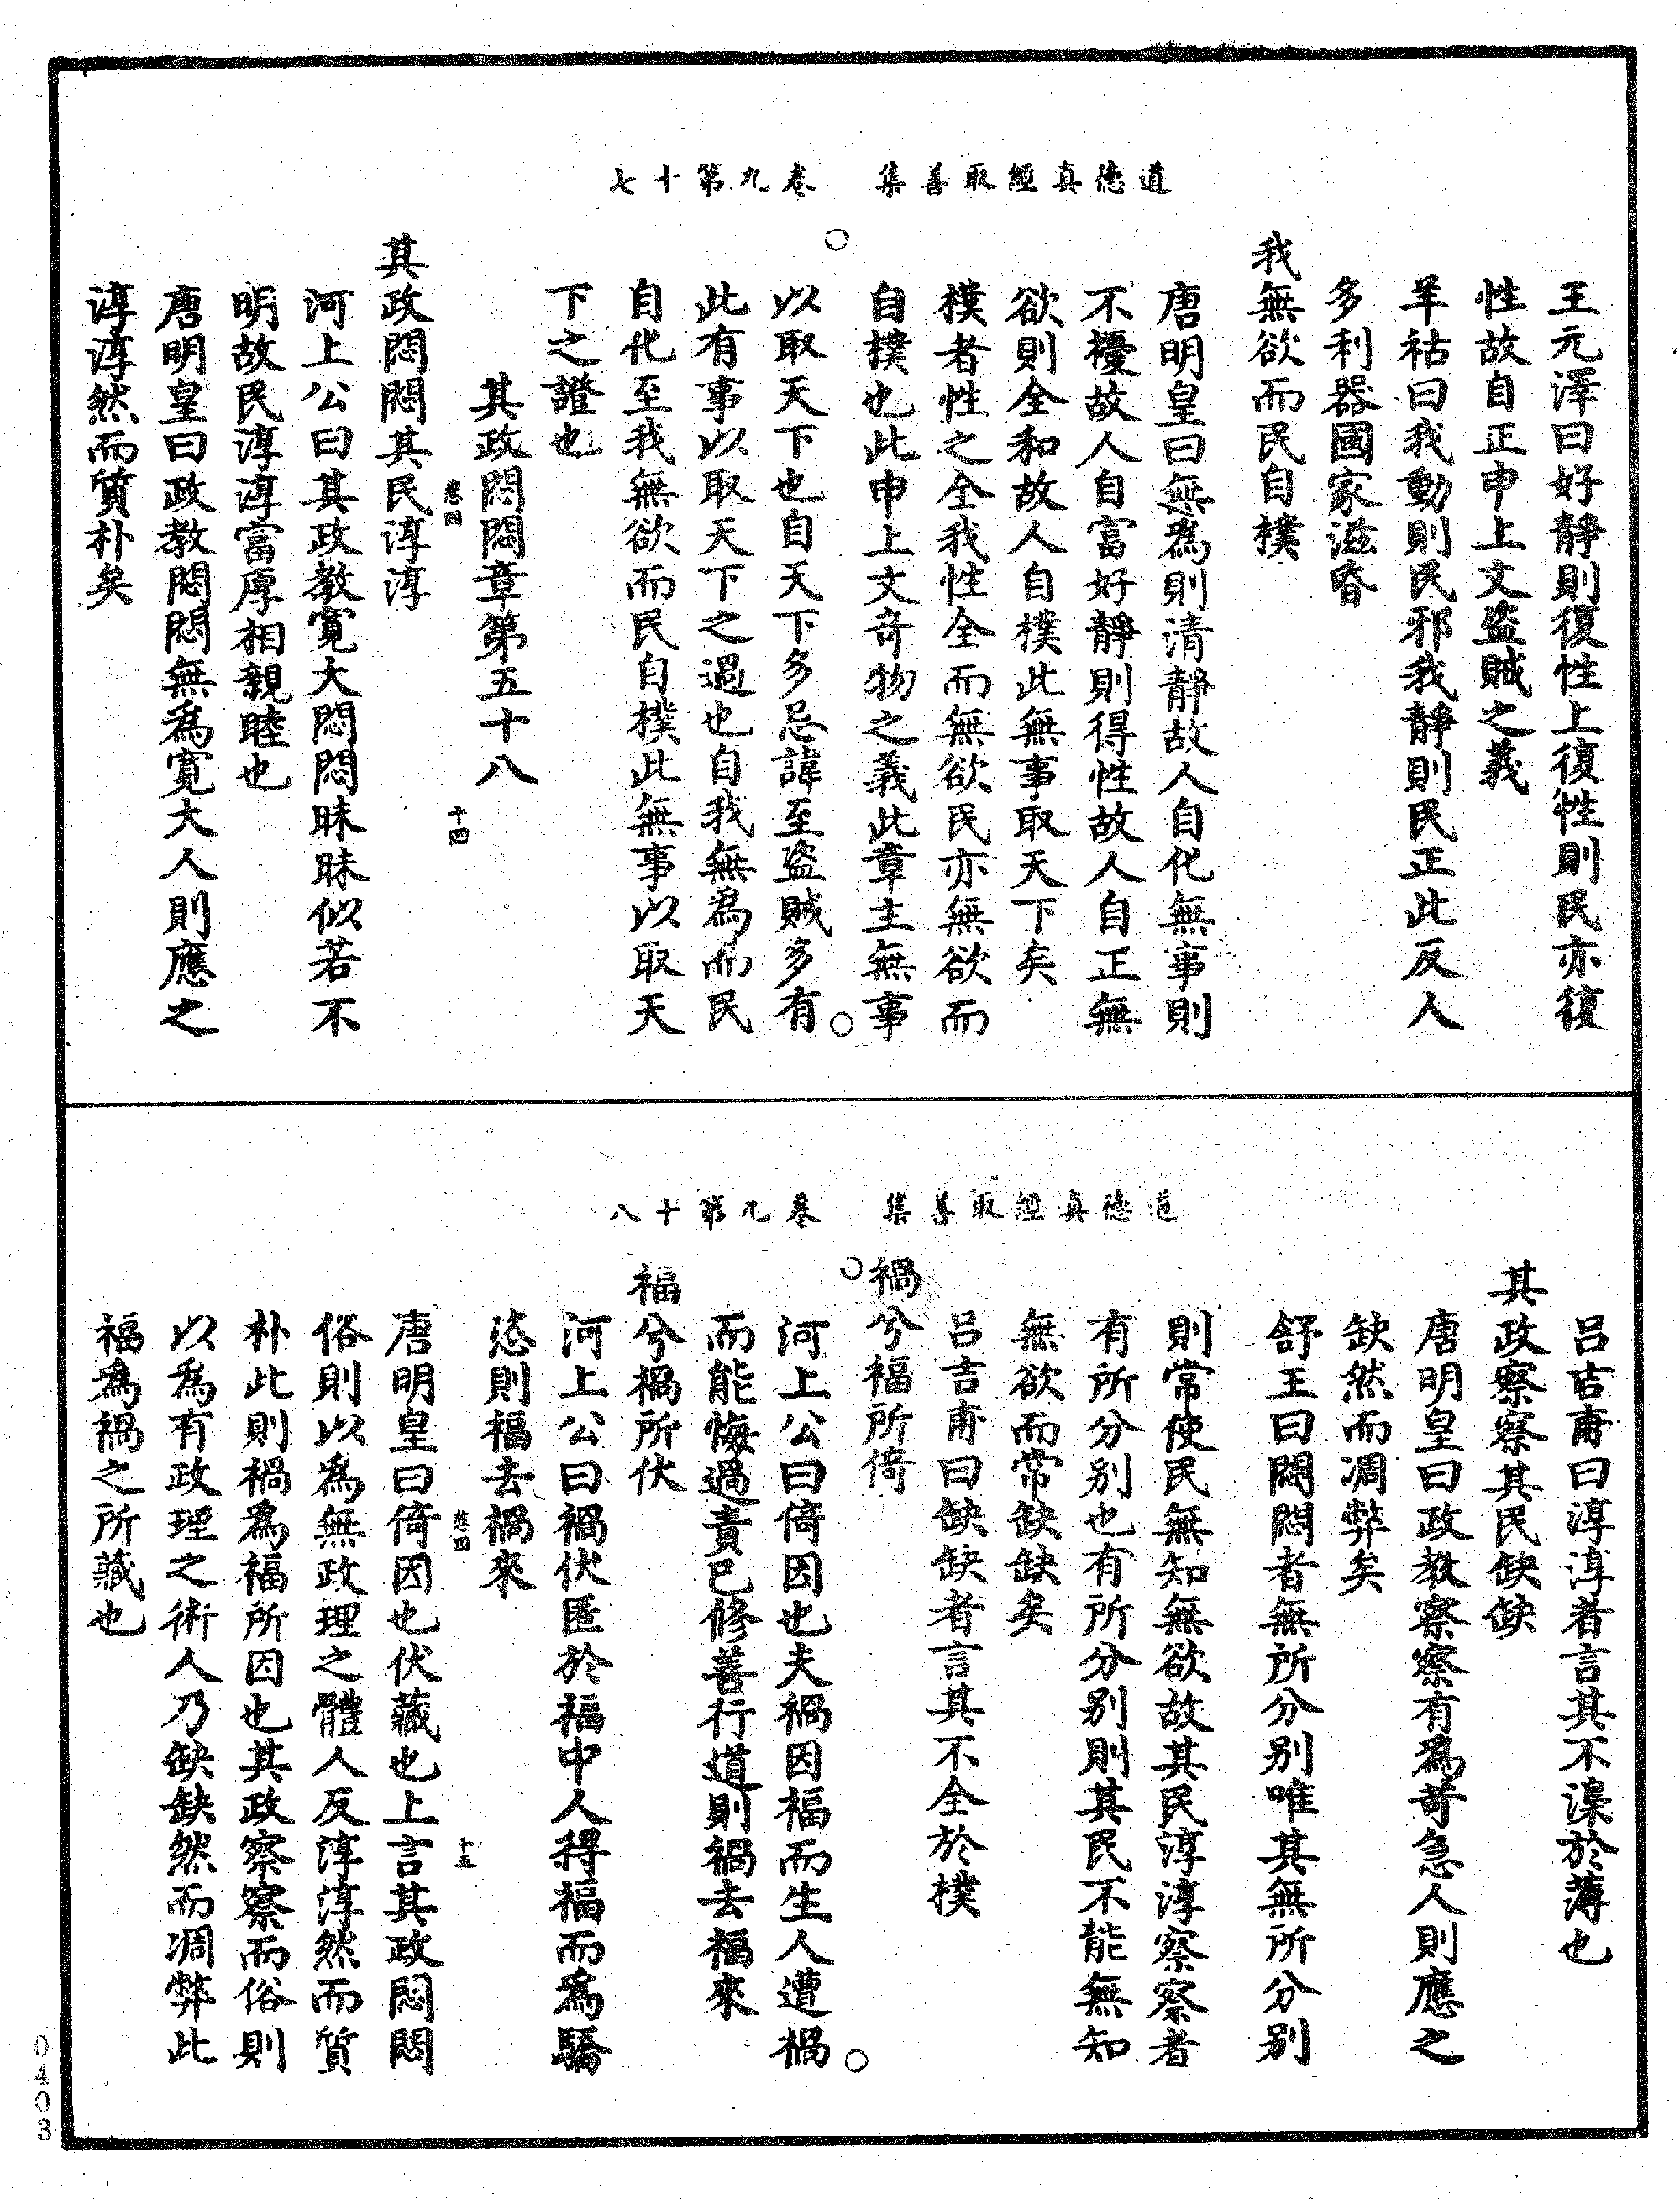 道德真經取善集　卷九第十七
王元澤曰好靜則復性上復性則民亦復
性故自正申上文盜賊之義
羊祜曰我動則民邪我靜則民正此反人
多利器國家滋昏
我無欲而民自樸
唐明皇曰無為則清靜故人自化無事則
不擾故人自富好靜則得性故人自正無
欲則全和故人自樸此無事取天下矣
樸者性之全我性全而無欲民亦無欲而
自樸也此申上文奇物之義此章主無事
以取天下也自天下多忌諱至盜賊多有
此有事以取天下之過也自我無為而民
自化至我無欲而民自樸此無事以取天
下之證也
其政悶悶章第五十八
十四
其政悶悶其民淳淳
河上公曰其政教寬大悶悶昧昧似若不
明故民淳淳富厚相親睦也
唐明皇曰政教悶悶無為寬大人則應之
淳淳然而質朴矣
道德真經取善集　卷九第十八
呂吉甫曰淳淳者言其不澆於薄也
其政察察其民缺缺
唐明皇曰政教察察有為苛急人則應之
缺然而凋弊矣
舒王曰悶悶者無所分別唯其無所分別
則常使民無知無欲故其民淳淳察察者
有所分別也有所分別則其民不能無知
無欲而常缺缺矣
呂吉甫曰缺缺者言其不全於樸
禍兮福所倚
河上公曰倚因也夫禍因福而生人遭禍
而能悔過責已修善行道則禍去福來
福兮禍所伏
河上公曰禍伏匿於福中人得福而為驕
恣則福去禍來
十五
唐明皇曰倚因也伏藏也上言其政悶悶
俗則以為無政理之體人反淳淳然而質
朴此則禍為福所因也其政察察而俗則
以為有政理之術人乃缺缺然而凋弊此
福為禍之所藏也
0403